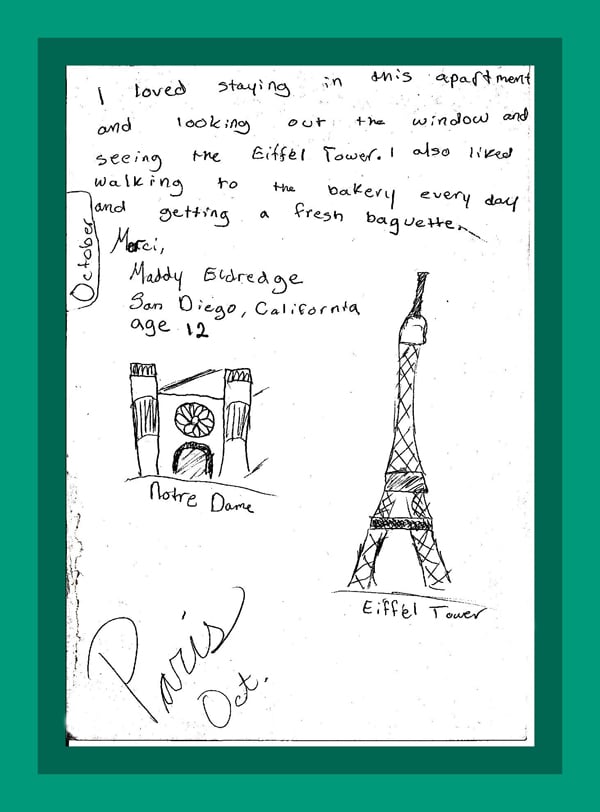 I loved staying in this apartment
and looking out the window and
seeing the Eiffel Tower. I also liked
walking to the bakery every day
and getting a fresh baguette.
October
Merci,
Maddy Eldredge
San Diego, California
age 12
Notre Dame
Eiffel Tower
Paris
Oct.